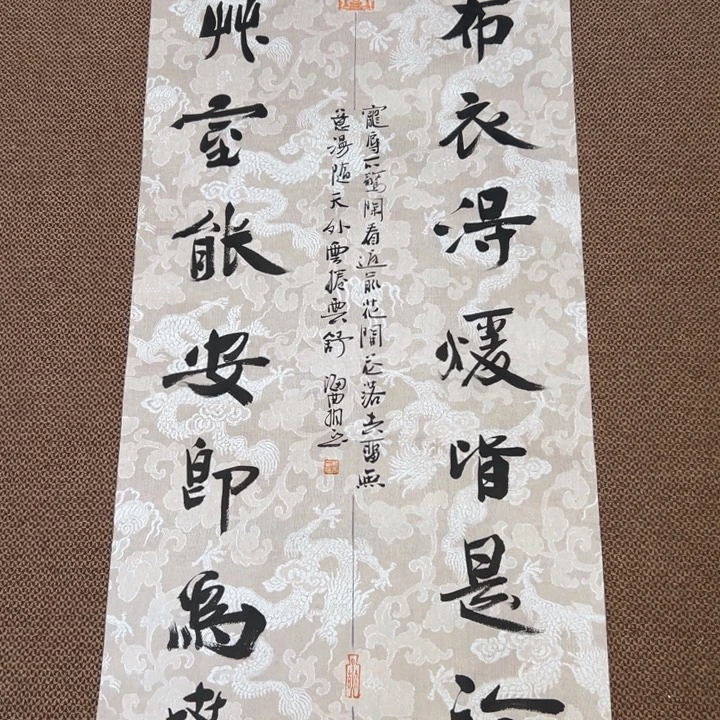 布衣得煖皆是
寵辱不驚閑看庭前花開花落去留無
意漫隨天外雲捲雲舒
艸室能安即為